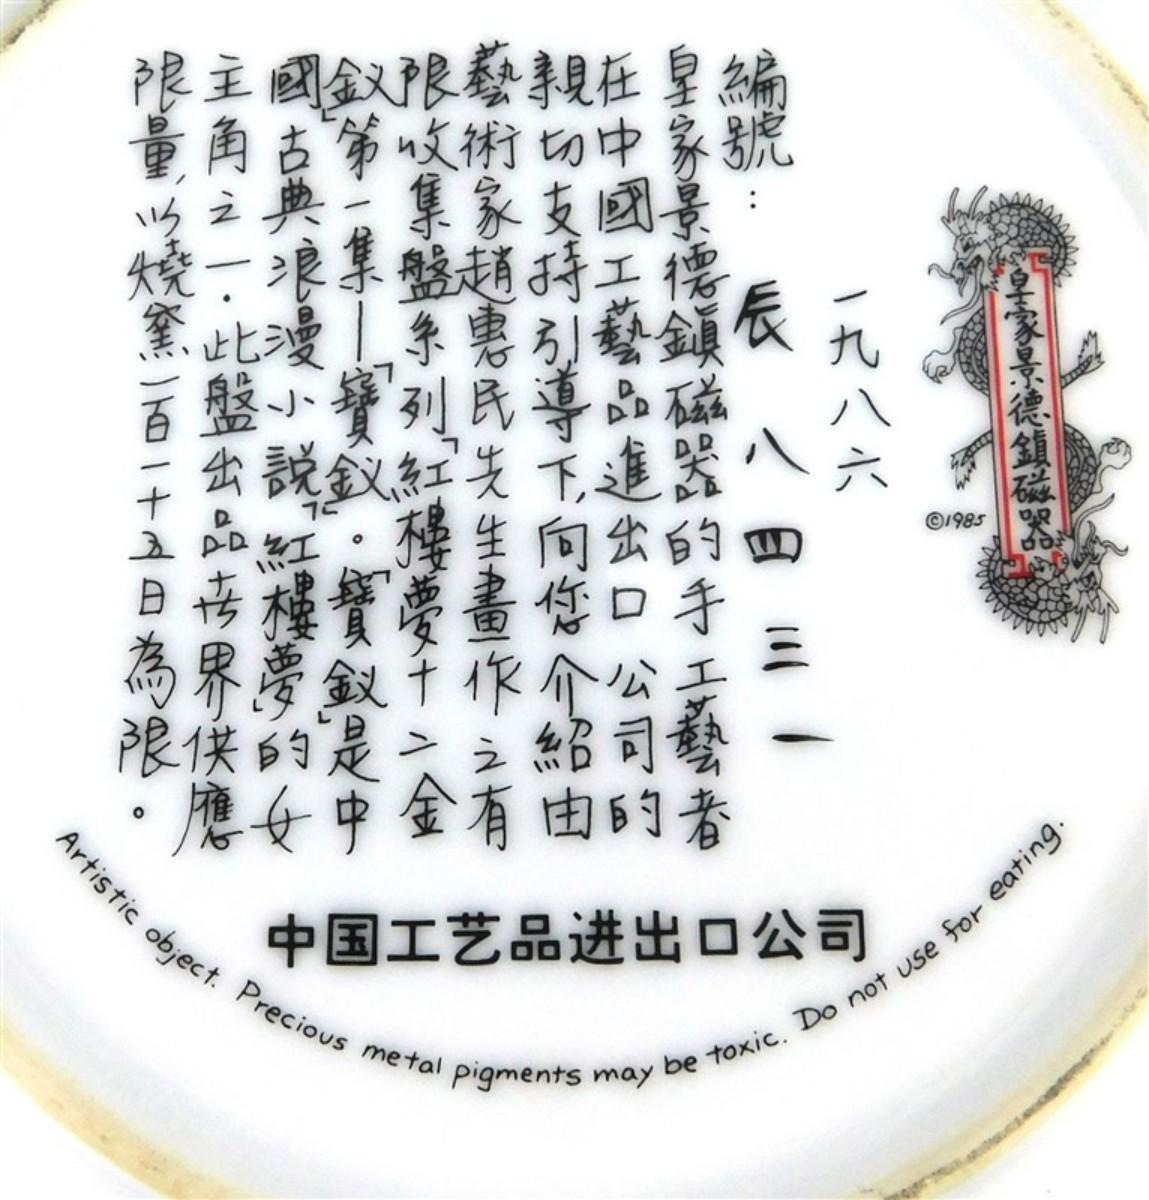 皇家景德鎮磁器
©1985
一九八六
編號:辰八四三一
皇家景德鎮磁器的手工藝者
在中國工藝品進出口公司的
親切支持引導下,向您介紹由
藝術家趙惠民先生畫作之有
限收集盤系列「紅樓夢十二金
釵」第一集—「寶釵」。「寶釵」是中
國古典浪漫小說「紅樓夢」的女
主角之一.此盤出品世界供應
限量,以燒窯一百一十五日為限。
中国工艺品进出口公司
Artistic object. Precious metal pigments may be toxic. Do not use for eating.